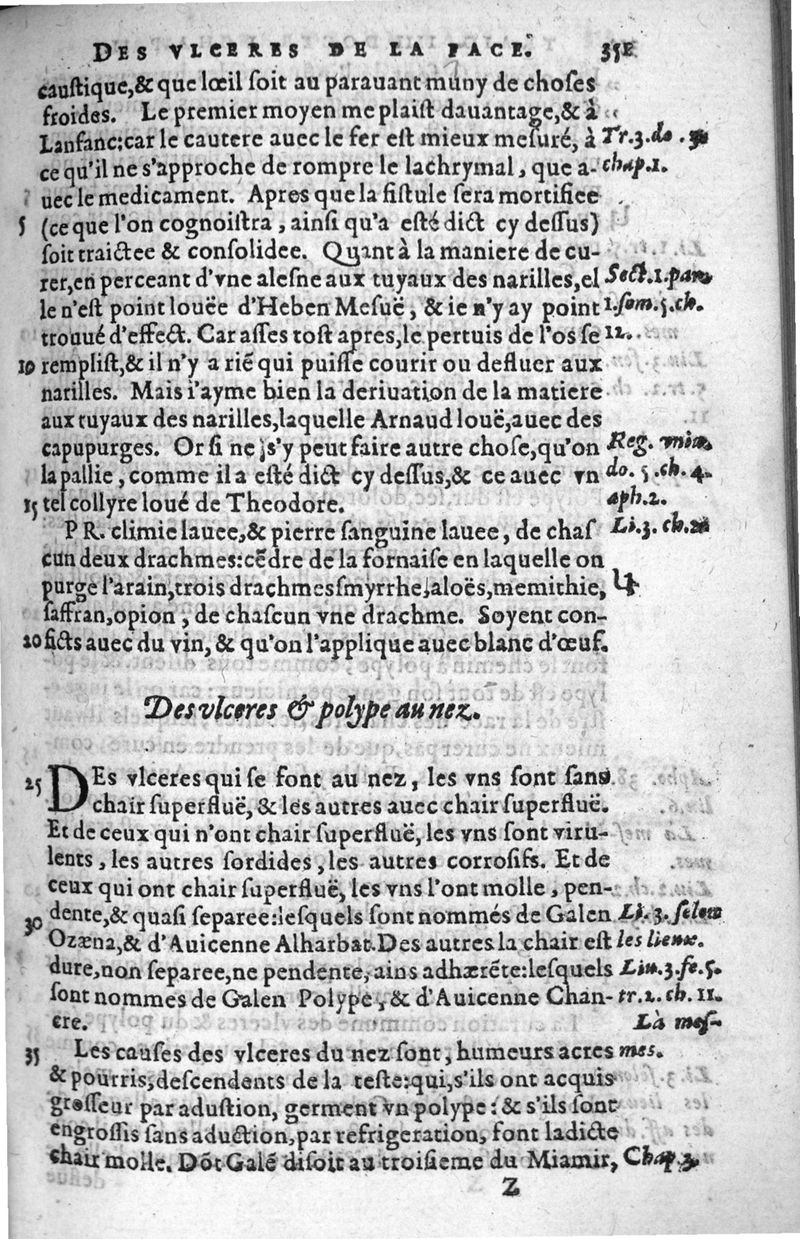 DES VLCERES DE LA FACE. 351
caustique,& que lœil soit au parauant muny de choses
froides. Le premier moyen me plaist dauantage,& à
Lanfanc:car le cautere auec le fer est mieux mesuré, à Tr.3.do.
ce qu'il ne s'approche de rompre le lachrymal, que a- chap.1.
uec le medicament. Apres que la fistule sera mortifiee
5 (ce que l'on cognoistra, ainsi qu'a esté dict cy dessus)
soit traictee & consolidee. Quant à la maniere de cu-
rer,en perceant d'vne alesne aux tuyaux des narilles,el Sect.1.par.
le n'est point louëe d'Heben Mesuë, & ie n'y ay point 1.som.5.ch.
trouué d'effect. Car asses tost apres,le pertuis de l'os se 12.
10 remplist,& il n'y a riē qui puisse courir ou defluer aux
narilles. Mais i'ayme bien la deriuation de la matiere
aux tuyaux des narilles,laquelle Arnaud louë,auec des
capupurges. Or si ne s'y peut faire autre chose,qu'on Reg.
la pallie, comme il a esté dict cy dessus,& ce auec vn do. 5. ch. 4.
15 tel collyre loué de Theodore. aph.2.
PR. climie lauee,& pierre sanguine lauee, de chas Li.3. ch.
cun deux drachmes:cēdre de la fornaise en laquelle on
purge l'arain,trois drachmes smyrrhe,aloës,memithie,
saffran,opion, de chascun vne drachme. Soyent con-
20 ficts auec du vin,& qu'on l'applique auec blanc d'œuf.
Des vlceres & polype au nez.
25 DEs vlceres qui se font au nez, les vns sont sans
chair superfluë,& les autres auec chair superfluë.
Et de ceux qui n'ont chair superfluë, les vns sont viru-
lents, les autres sordides, les autres corrosifs. Et de
ceux qui ont chair superfluë, les vns l'ont molle, pen-
30 dente,& quasi separee:lesquels sont nommés de Galen Li. 3. selon
Ozæna,& d'Auicenne Alharbat.Des autres la chair est les lieux.
dure,non separee,ne pendente, ains adhærēte:lesquels Liu.3.fe.5.
sont nommes de Galen Polype, & d'Auicenne Chan- tr.2. ch. 11.
cre. Là mes-
35 Les causes des vlceres du nez sont, humeurs acres mes.
& pourris,descendents de la teste:qui,s'ils ont acquis
grosseur par adustion, germent vn polype: & s'ils sont
engrossis sans aduction,par refrigeration, font ladicte
chair molle. Dōt Galē disoit au troisieme du Miamir, Chap.3.
Z